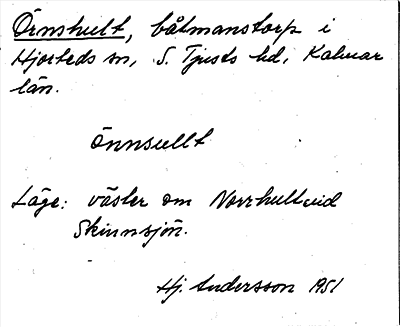 Örnshult, båtmanstorp i
Hjorteds sn, S. Tjusts hd, Kalmar
län.
önnsullt
Läge: väster om Norrhult vid
Skinnsjön.
Hj. Andersson 1951